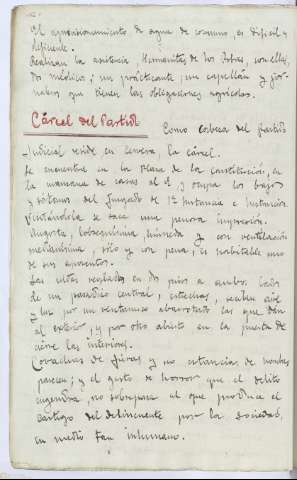 el aprovisionamiento de agua de consumo, es dificil y
deficiente.
Realizan la asistencia, Hermanitas de los Pobres, con ellas,
dos médicos; un practicante, un capellán y jor-
naleros que tienen las obligaciones agrícolas.
Cárcel del Partido
Como cabeza del partido
judicial reside en Cervera, la cárcel.
Se encuentra en la Plaza de la Constitución, en
la manzana de casas al O y ocupa los bajos
y sótanos del Juzgado de 1ª Instancia e Instrucción.
Visitándola se saca una penosa impresión.
Angosta, lobreguísima, húmeda y con ventilación
medianísima, sólo y con pena, es habitable uno
de sus aposentos.
Las celdas regladas en dos pisos a ambos lados
de un pasadizo central, estrechas, reciben aire
y luz por un ventanuco abarrotado las que dan
al exterior, y por otro abierto en la puerta de
cierre las interiores.
Covachas de fieras y no estancias de hombres
parecen; y el gesto de horror que el delito
engendra, no sobrepasa al que produce el
castigo del delincuente por la sociedad,
en medio tan inhumano.